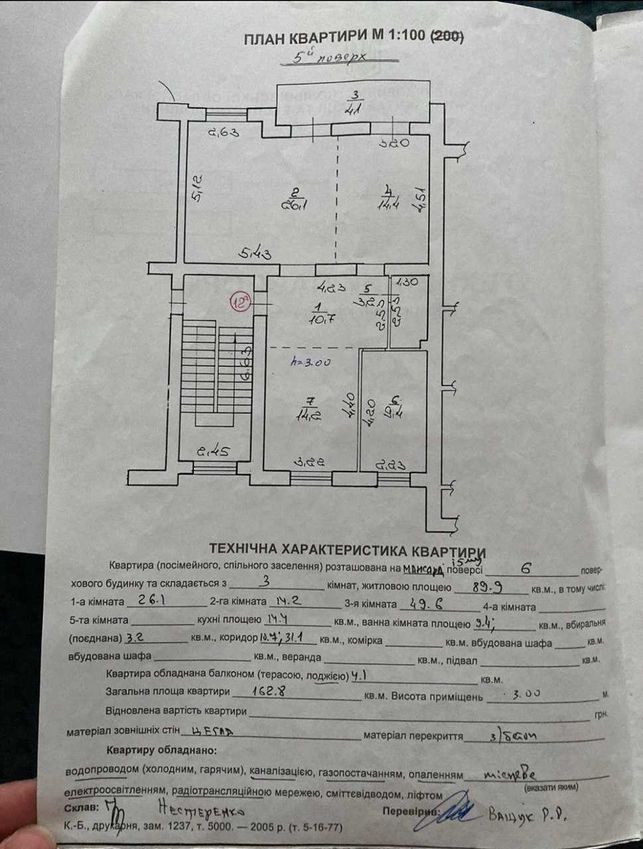 ПЛАН КВАРТИРИ М 1:100 (200)
5й поверх
3
4.1
2,63
3,20
5,12
2
26,1
4
14.4
4,51
5,43
4,23
1,30
12а
1
10,7
5
3,2
2,52
2,52
h=3.00
6.63
7
14,2
4,40
4,20
6
9,4
2,45
3,22
2,23
ТЕХНІЧНА ХАРАКТЕРИСТИКА КВАРТИРИ
Квартира (посімейного, спільного заселення) розташована на мансард поверсі 6 повер-
хового будинку та складається з 3 кімнат, житловою площею 89.9 кв.м., в тому числі:
1-а кімната 26.1 2-га кімната 14.2 3-я кімната 49.6 4-а кімната
5-та кімната кухні площею 14.4 кв.м., ванна кімната площею 9.4; кв.м., вбиральня
(поєднана) 3.2 кв.м., коридор 10.7; 31.1 кв.м., комірка кв.м. вбудована шафа кв.м.
вбудована шафа кв.м., веранда кв.м., підвал кв.м.
Квартира обладнана балконом (терасою, лоджією) 4.1 кв.м.
Загальна площа квартири 162.8 кв.м. Висота приміщень 3.00 м.
Відновлена вартість квартири грн.
матеріал зовнішніх стін цегла матеріал перекриття з/бетон
Квартиру обладнано:
водопроводом (холодним, гарячим), каналізацією, газопостачанням, опаленням місцеве
(вказати яким)
електроосвітленням, радіотрансляційною мережею, сміттєвідводом, ліфтом
Склав: Нестеренко Перевірив: Ващук Р.Р.
К.-Б., друкарня, зам. 1237, т. 5000. — 2005 р. (т. 5-16-77)